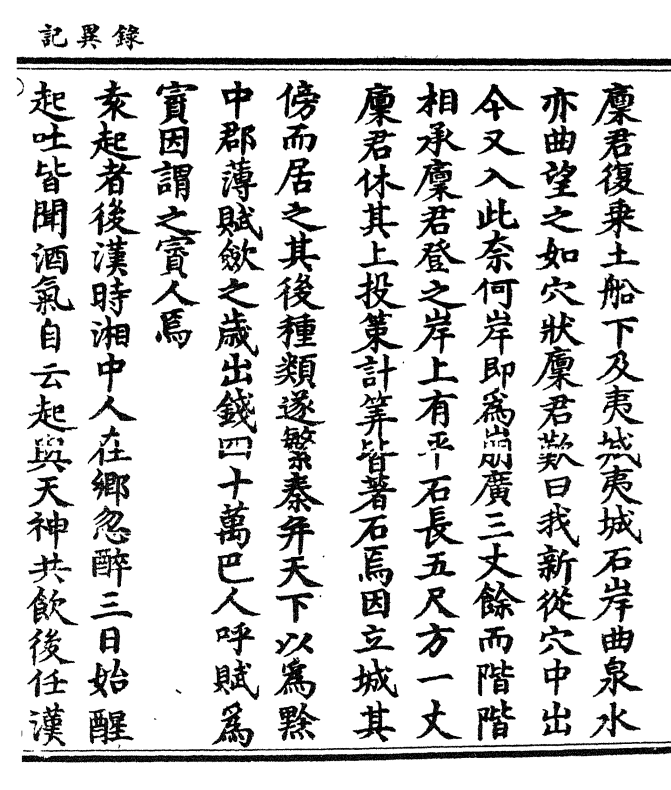 記異錄
廩君復乗土船下及夷城夷城石岸曲泉水
亦曲望之如穴狀廩君歎曰我新從穴中出
今又入此奈何岸即為崩廣三丈餘而階階
相承廩君登之岸上有平石長五尺方一丈
廩君休其上投策計筭皆著石焉因立城其
傍而居之其後種類遂繁秦并天下以為黔
中郡薄賦斂之歲出錢四十萬巴人呼賦為
賨因謂之賨人焉
起者後漢時湘中人在鄉忽醉三日始醒
起吐皆聞酒氣自云起與天神共飲後任漢